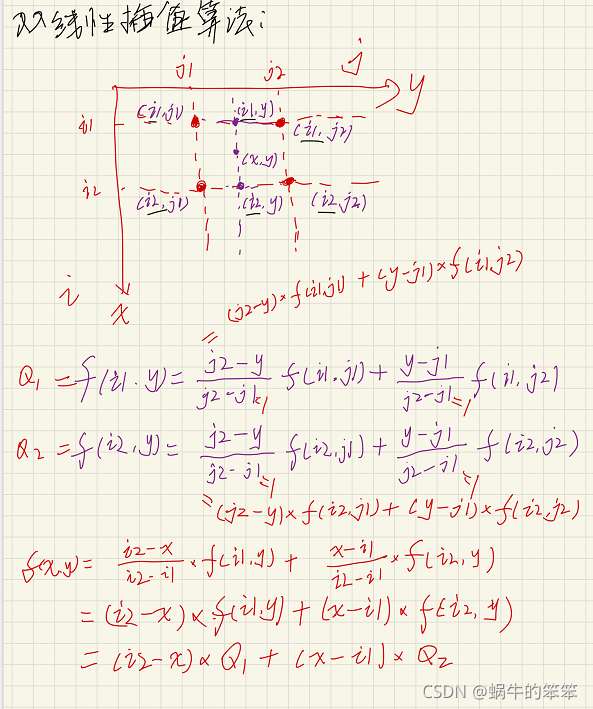 双线性插值算法:
j1 j2 j
y
i1 (i1,j1) (i1,y) (i1,j2)
(x,y)
i2 (i2,j1) (i2,y) (i2,j2)
i x
(j2-y)×f(i1,j1) + (y-j1)×f(i1,j2)
=
Q1 = f(i1.y) = j2-y/j2-j1 f(i1.j1) + y-j1/j2-j1 f(i1,j2)
=1 =1
Q2 = f(i2,y) = j2-y/j2-j1 f(i2,j1) + y-j1/j2-j1 f(i2,j2)
=1 =1
=(j2-y)×f(i2,j1) + (y-j1)×f(i2,j2)
f(x,y) = i2-x/i2-i1 × f(i1,y) + x-i1/i2-i1 × f(i2,y)
= (i2-x)×f(i1,y) + (x-i1)×f(i2,y)
= (i2-x)×Q1 + (x-i1)×Q2
CSDN @蜗牛的笨笨